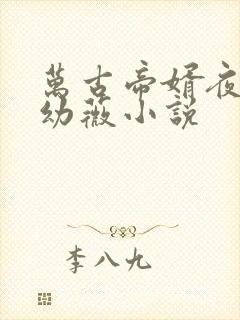 萬古帝婿夜
幼薇小説
李八九